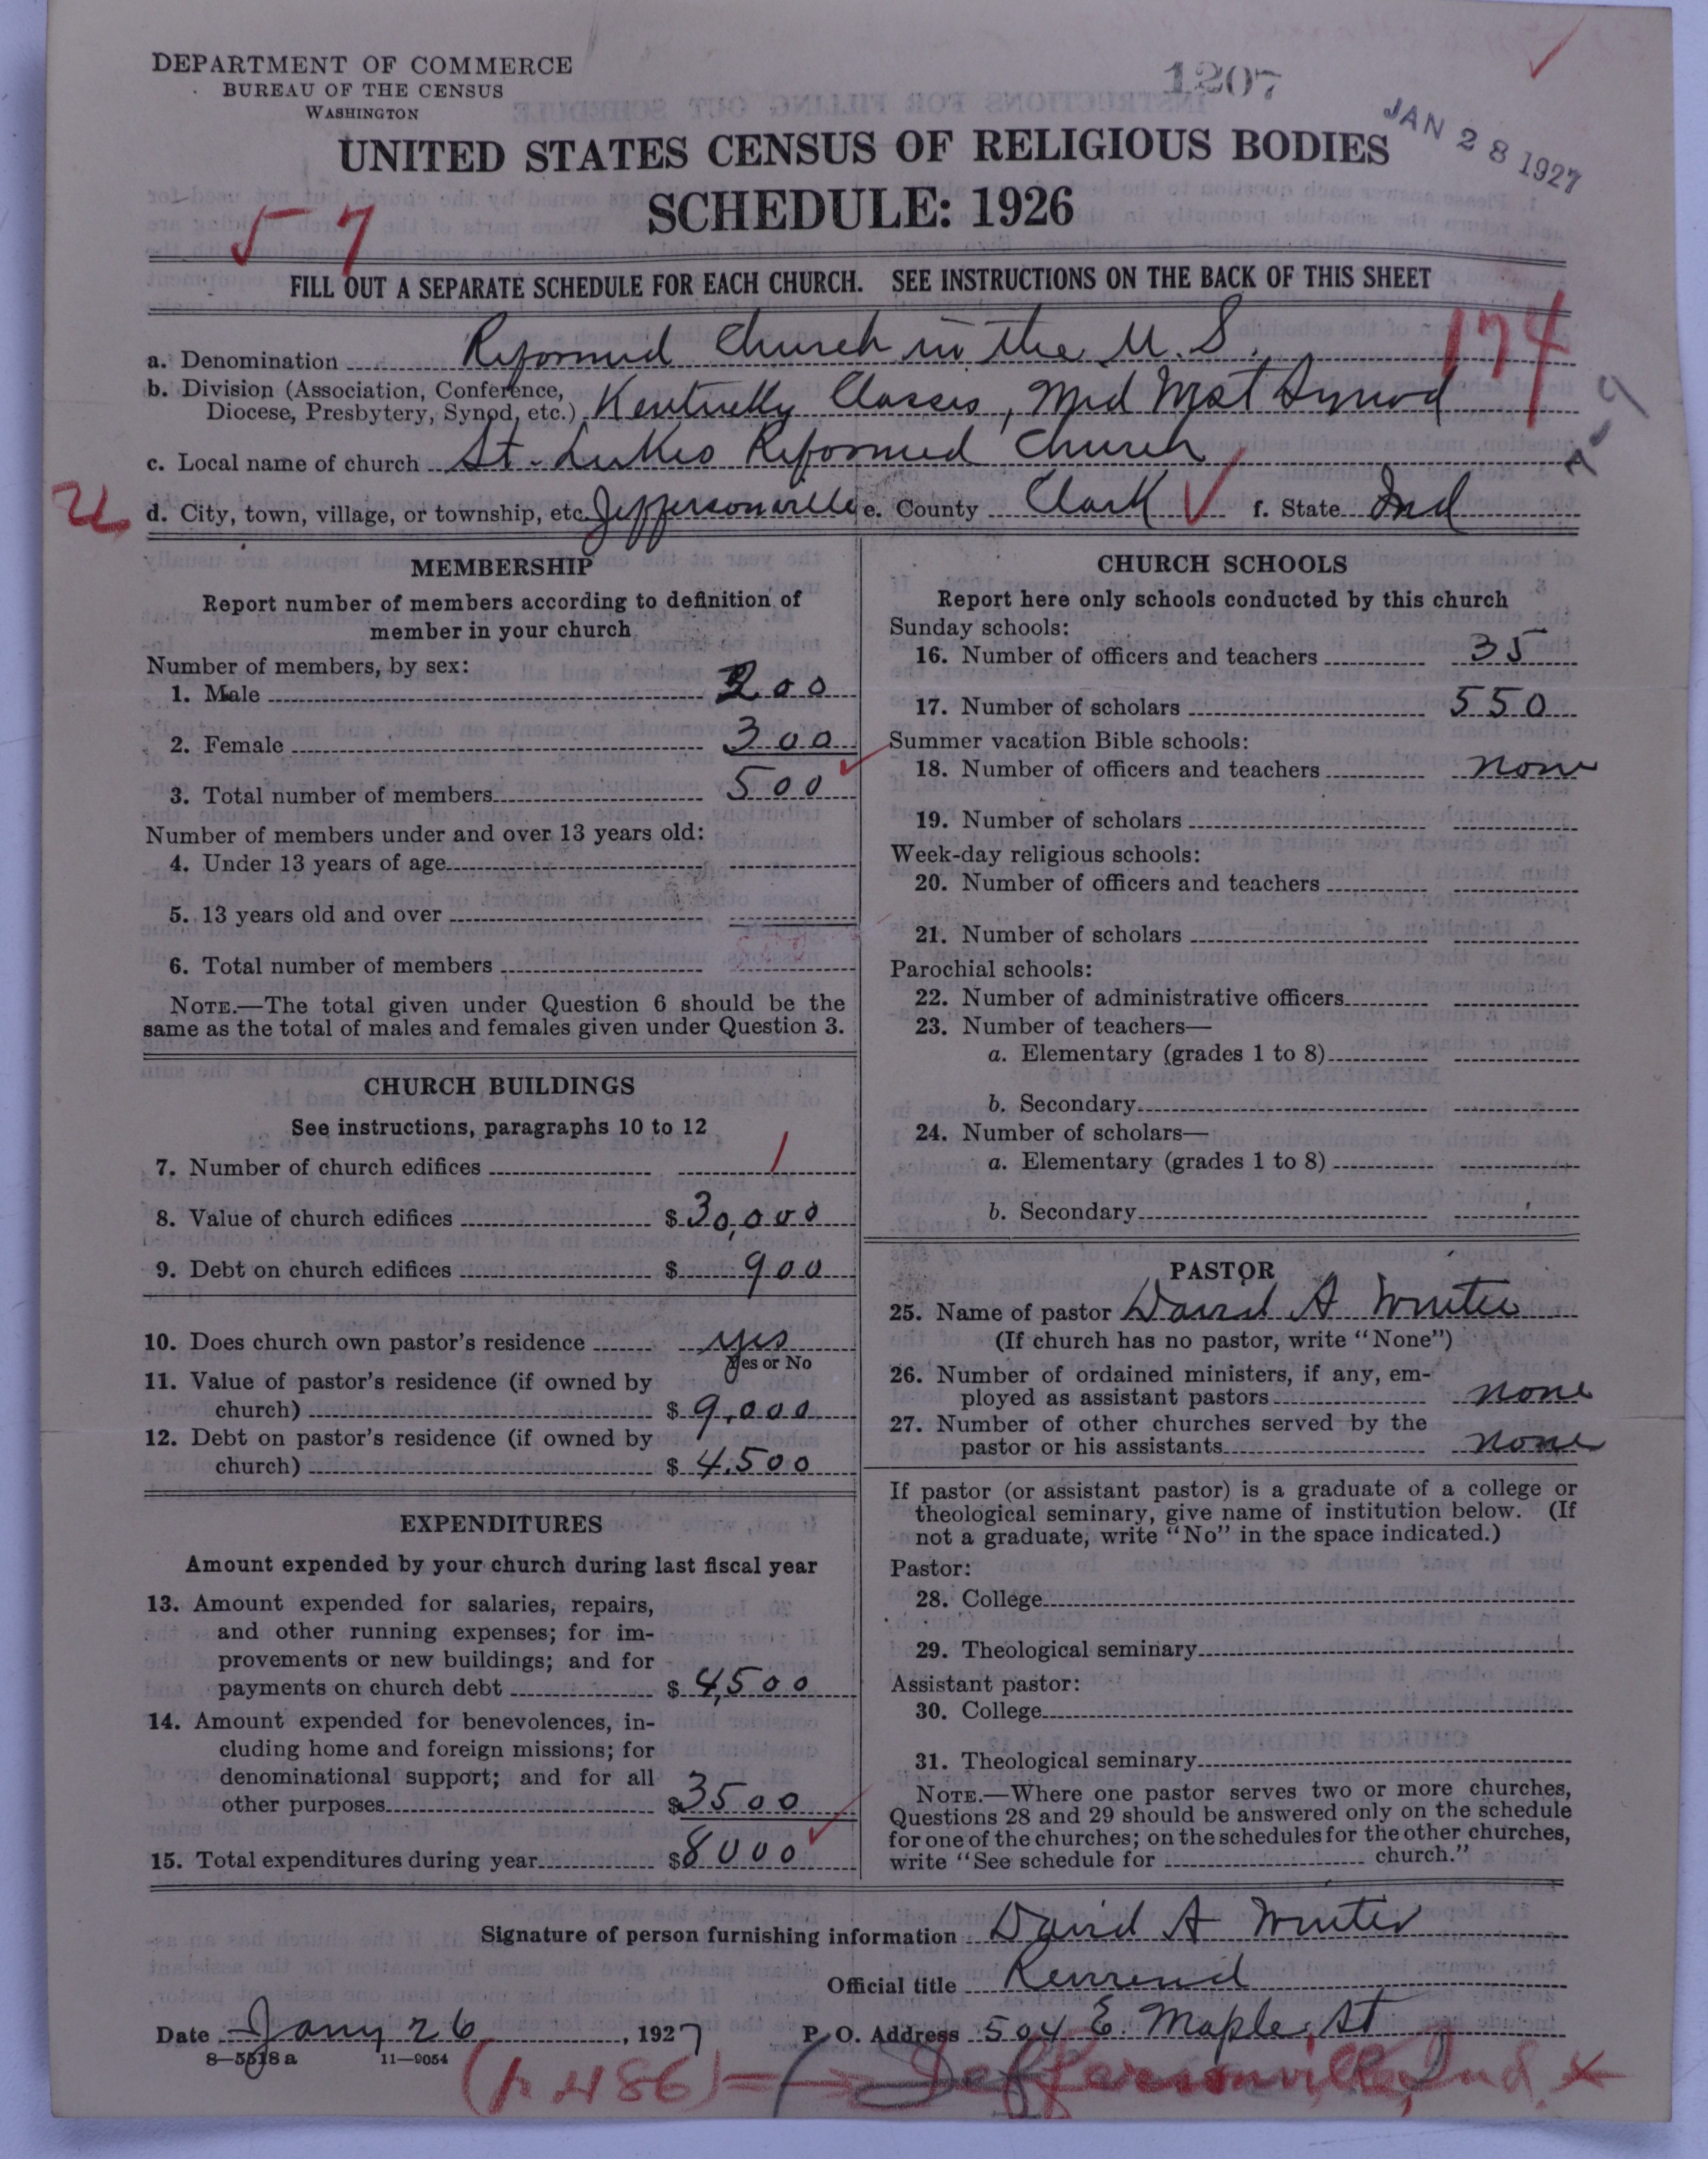 DEPARTMENT OF COMMERCE
BUREAU OF THE CENSUS
WASHINGTON
1207
JAN 28 1927
UNITED STATES CENSUS OF RELIGIOUS BODIES
SCHEDULE: 1926
57
FILL OUT A SEPARATE SCHEDULE FOR EACH CHURCH. SEE INSTRUCTIONS ON THE BACK OF THIS SHEET
174
a. Denomination Reformed Church in the U.S.
b. Division (Association, Conference,
Diocese, Presbytery, Synod, etc.) Kentucky Classis, Mid West Synod
c. Local name of church St. Lukes Reformed Church
d. City, town, village, or township, etc. Jeffersonville e. County Clark f. State Ind
MEMBERSHIP
Report number of members according to definition of
member in your church
Number of members, by sex:
1. Male 200
2. Female 300
3. Total number of members 500
Number of members under and over 13 years old:
4. Under 13 years of age
5. 13 years old and over
6. Total number of members
NOTE.—The total given under Question 6 should be the
same as the total of males and females given under Question 3.
CHURCH BUILDINGS
See instructions, paragraphs 10 to 12
7. Number of church edifices 1
8. Value of church edifices $30,000
9. Debt on church edifices $900
10. Does church own pastor's residence yes
Yes or No
11. Value of pastor's residence (if owned by
church) $9,000
12. Debt on pastor's residence (if owned by
church) $4,500
EXPENDITURES
Amount expended by your church during last fiscal year
13. Amount expended for salaries, repairs,
and other running expenses; for im-
provements or new buildings; and for
payments on church debt $4,500
14. Amount expended for benevolences, in-
cluding home and foreign missions; for
denominational support; and for all
other purposes $3500
15. Total expenditures during year $8000
CHURCH SCHOOLS
Report here only schools conducted by this church
Sunday schools:
16. Number of officers and teachers 35
17. Number of scholars 550
Summer vacation Bible schools:
18. Number of officers and teachers none
19. Number of scholars
Week-day religious schools:
20. Number of officers and teachers
21. Number of scholars
Parochial schools:
22. Number of administrative officers
23. Number of teachers—
a. Elementary (grades 1 to 8)
b. Secondary
24. Number of scholars—
a. Elementary (grades 1 to 8)
b. Secondary
PASTOR
25. Name of pastor David A Winter
(If church has no pastor, write "None")
26. Number of ordained ministers, if any, em-
ployed as assistant pastors none
27. Number of other churches served by the
pastor or his assistants none
If pastor (or assistant pastor) is a graduate of a college or
theological seminary, give name of institution below. (If
not a graduate, write "No" in the space indicated.)
Pastor:
28. College
29. Theological seminary
Assistant pastor:
30. College
31. Theological seminary
NOTE.—Where one pastor serves two or more churches,
Questions 28 and 29 should be answered only on the schedule
for one of the churches; on the schedules for the other churches,
write "See schedule for church."
Signature of person furnishing information David A Winter
Official title Reverend
Date Jany 26, 1927 P. O. Address 504 E. Maple St
8—5518a 11—9054
(p 486) Jeffersonville, Ind. x